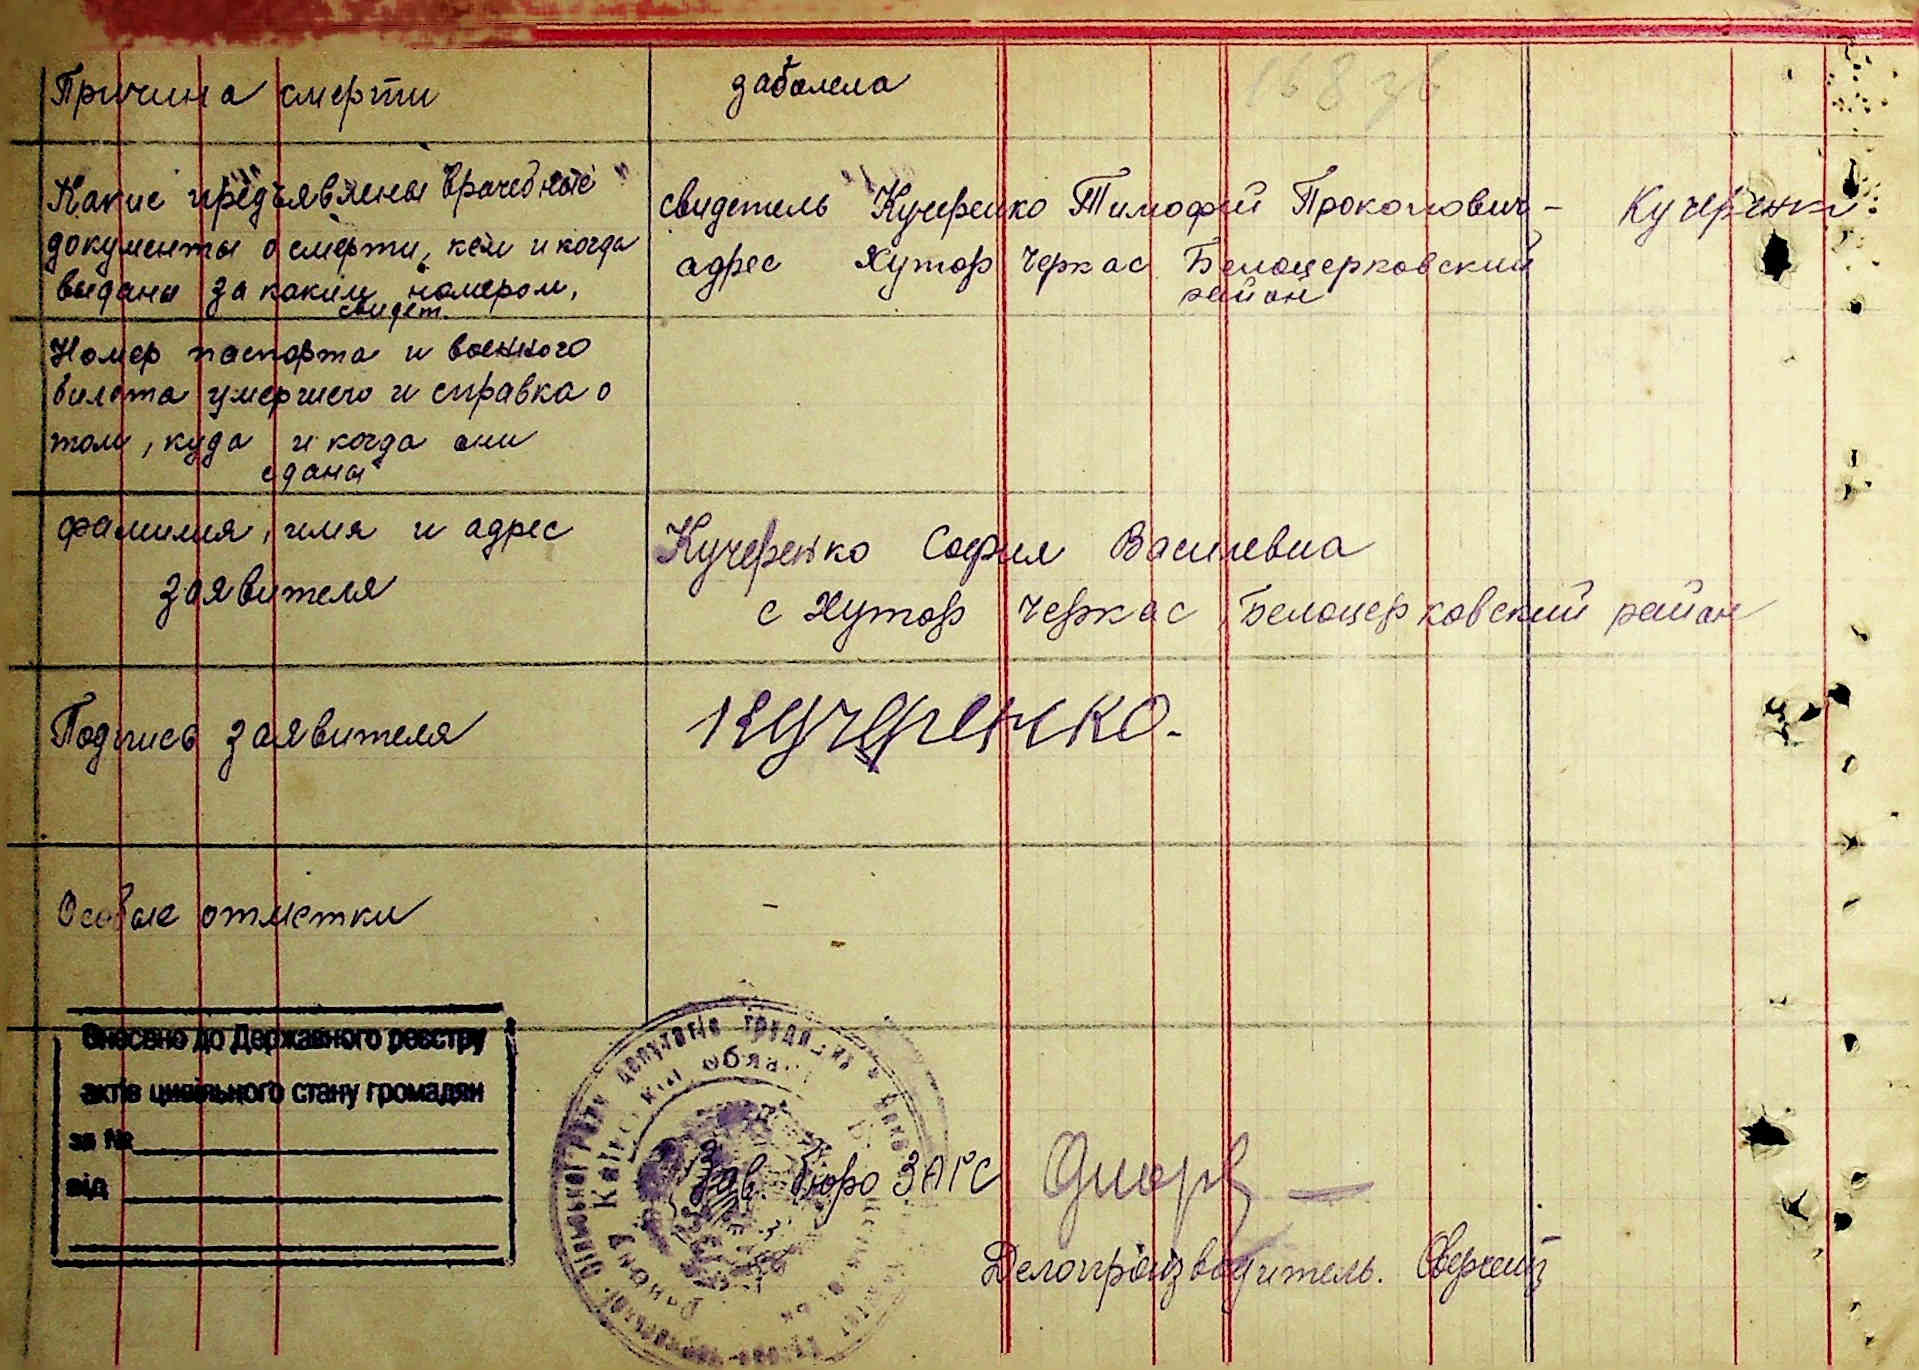 Причина смерти
заболела
Какие предъявлены врачебные
документы о смерти, кем и когда
выданы за каким номером,
свидет.
свидетель Кучеренко Тимофей Прокопович –
адрес Хутор Черкас Белоцерковский
район
Номер паспорта и военного
билета умершего и справка о
том, куда и когда они
сданы
фамилия, имя и адрес
заявителя
Кучеренко София Василевна
с Хутор Черкас Белоцерковский район
Подпись заявителя
Кучеренко.
Особые отметки
–
Внесено до Державного реєстру
актів цивільного стану громадян
за №
від
Зав. бюро ЗАГС
Делопроизводитель.